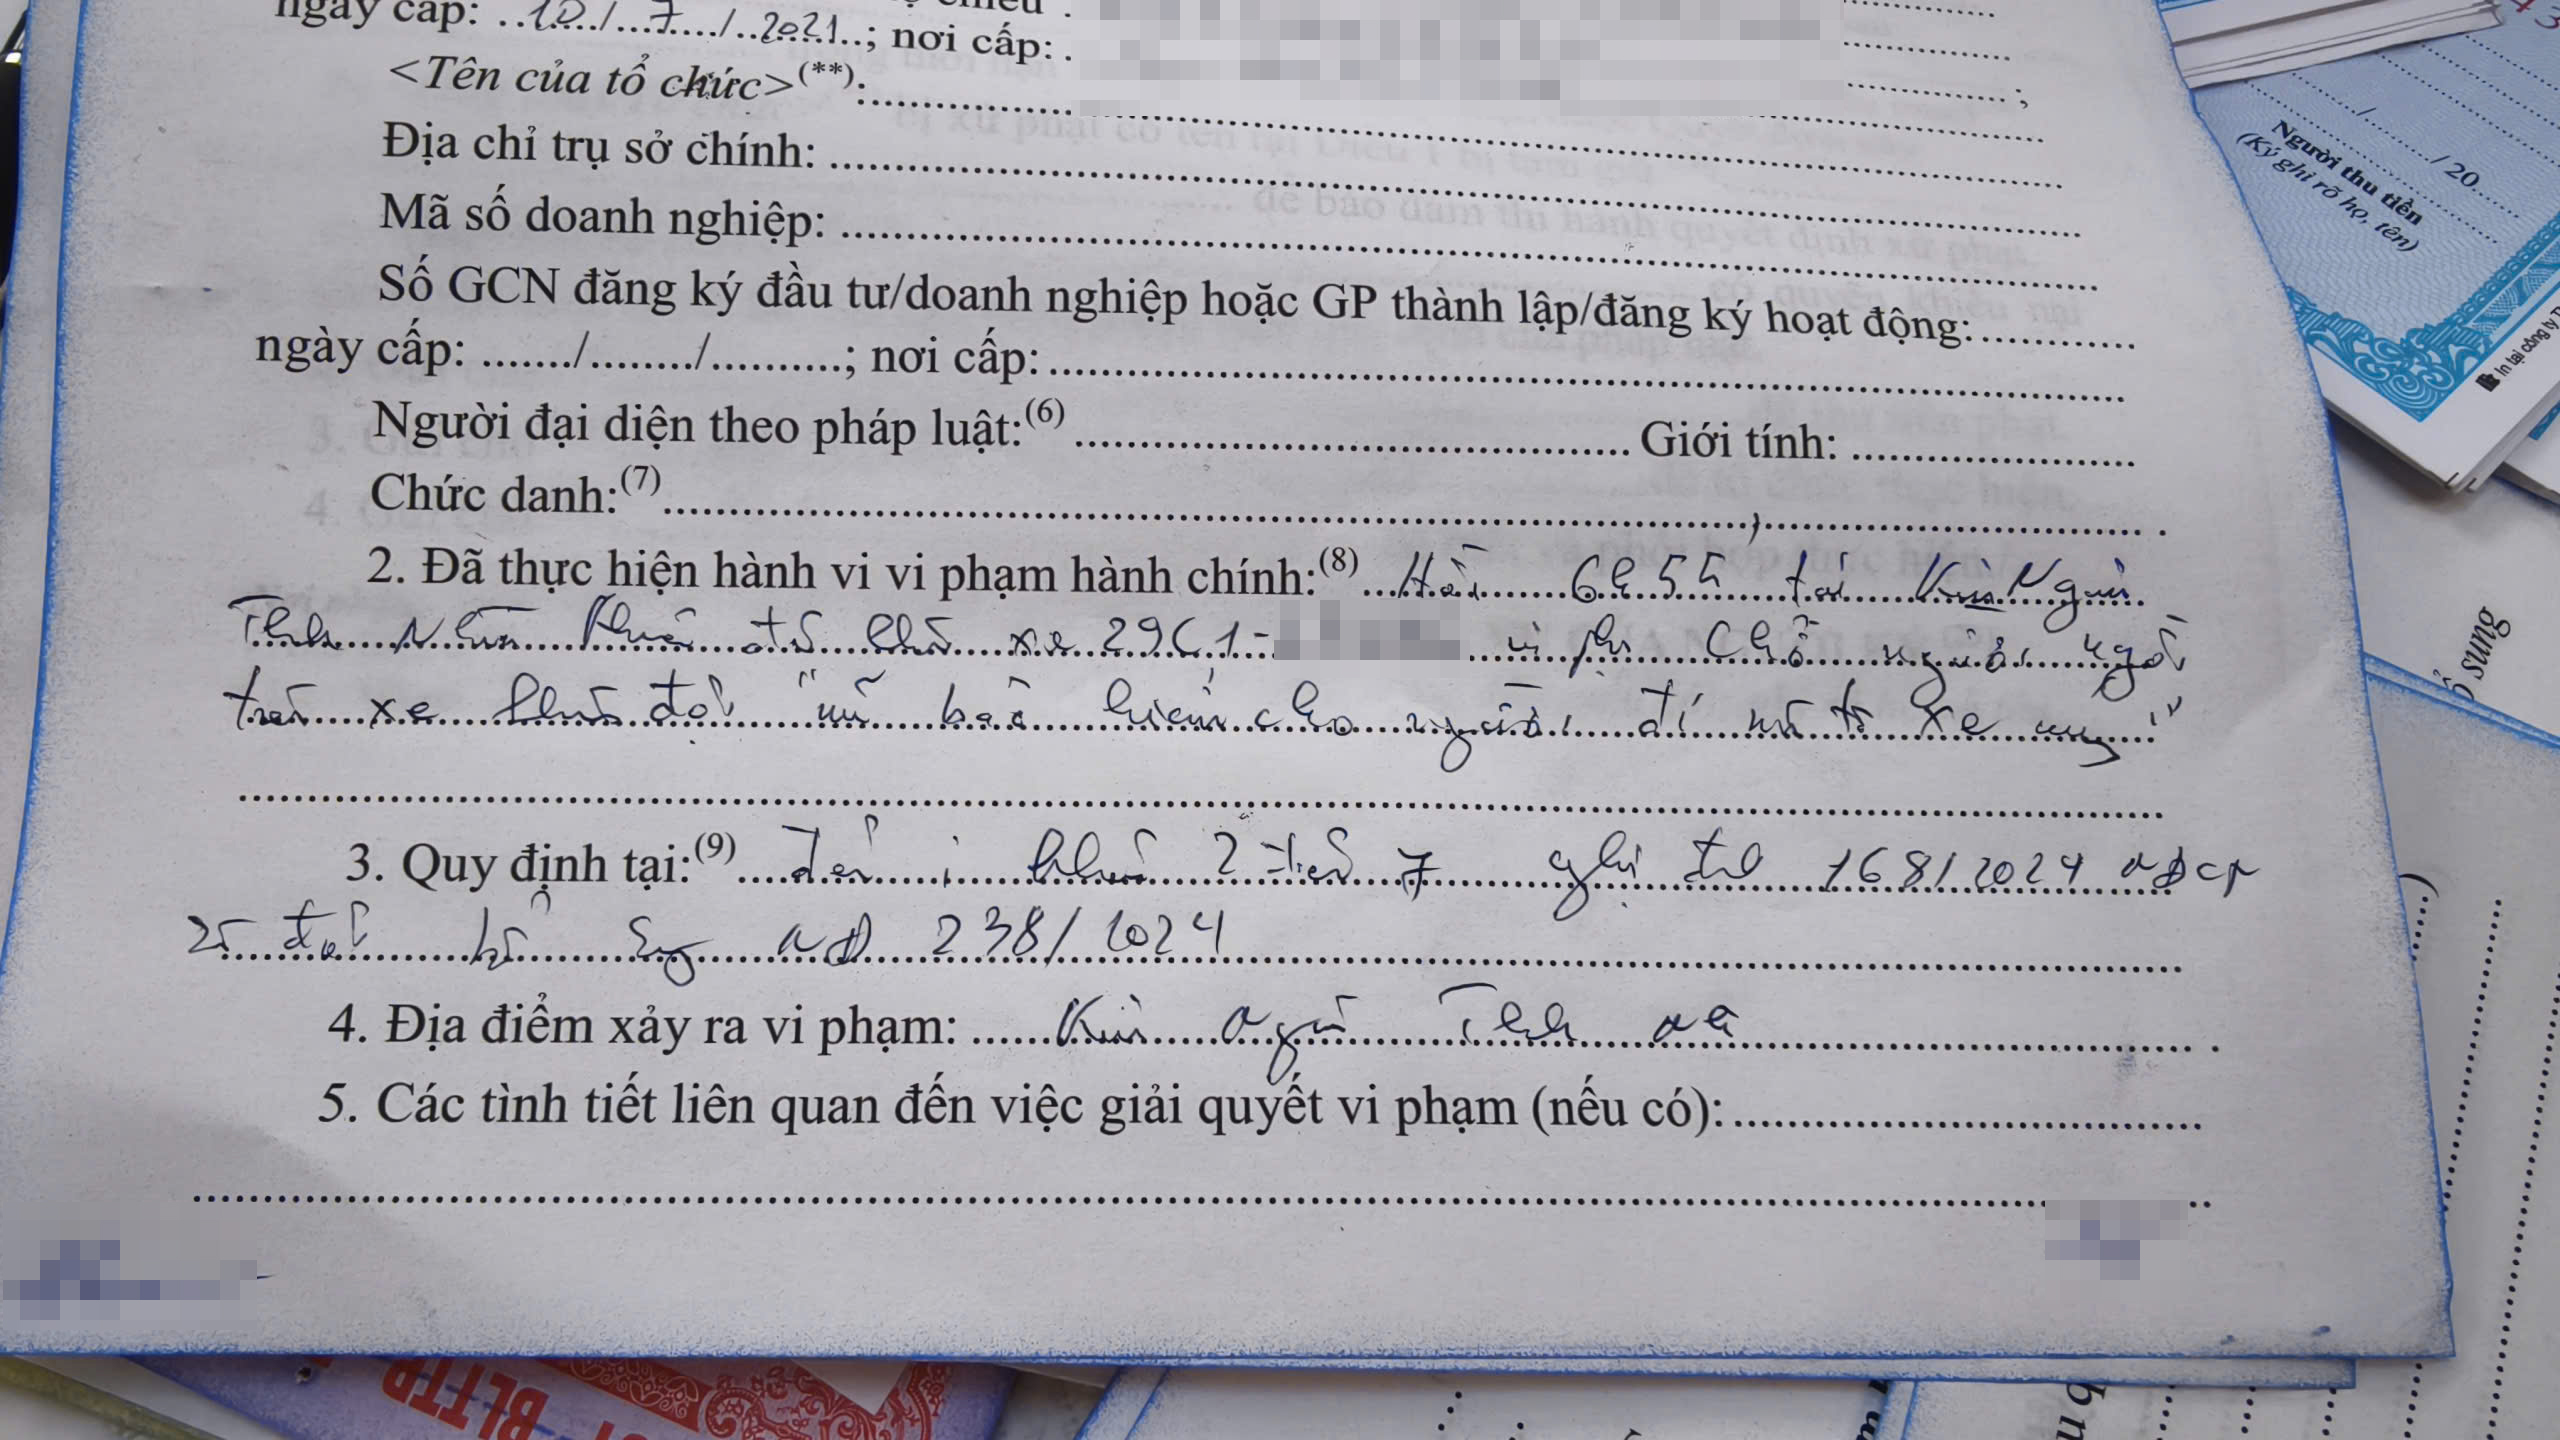 ngày cấp: ..10../..7..../..2021..; nơi cấp: .
<Tên của tổ chức>(**):
;
Địa chỉ trụ sở chính:
Mã số doanh nghiệp:
Số GCN đăng ký đầu tư/doanh nghiệp hoặc GP thành lập/đăng ký hoạt động:
ngày cấp: ......./......../..........; nơi cấp:
Người đại diện theo pháp luật:(6) Giới tính:
Chức danh:(7)
2. Đã thực hiện hành vi vi phạm hành chính:(8) Hồi 6h55 tại Kim Ngưu
Thanh Nhàn xe 29C1- Chở người ngồi
trên xe không đội "mũ bảo hiểm cho người đi mô tô xe máy"
3. Quy định tại:(9) điểm i khoản 2 điều 7 nghị định 168/2024 NĐCP
sửa đổi bổ sung NĐ 238/2024
4. Địa điểm xảy ra vi phạm: Kim Ngưu Thanh Nhàn
5. Các tình tiết liên quan đến việc giải quyết vi phạm (nếu có):
/ 20
Người thu tiền
(Ký ghi rõ họ, tên)
In tại công ty
sung
BLTTP